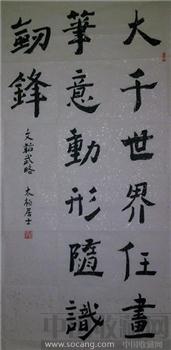 大千世界任畫
筆意動形隨識
劒鋒
文韜武略 太極居士
中国收藏网
www.socang.com
www.socang.com